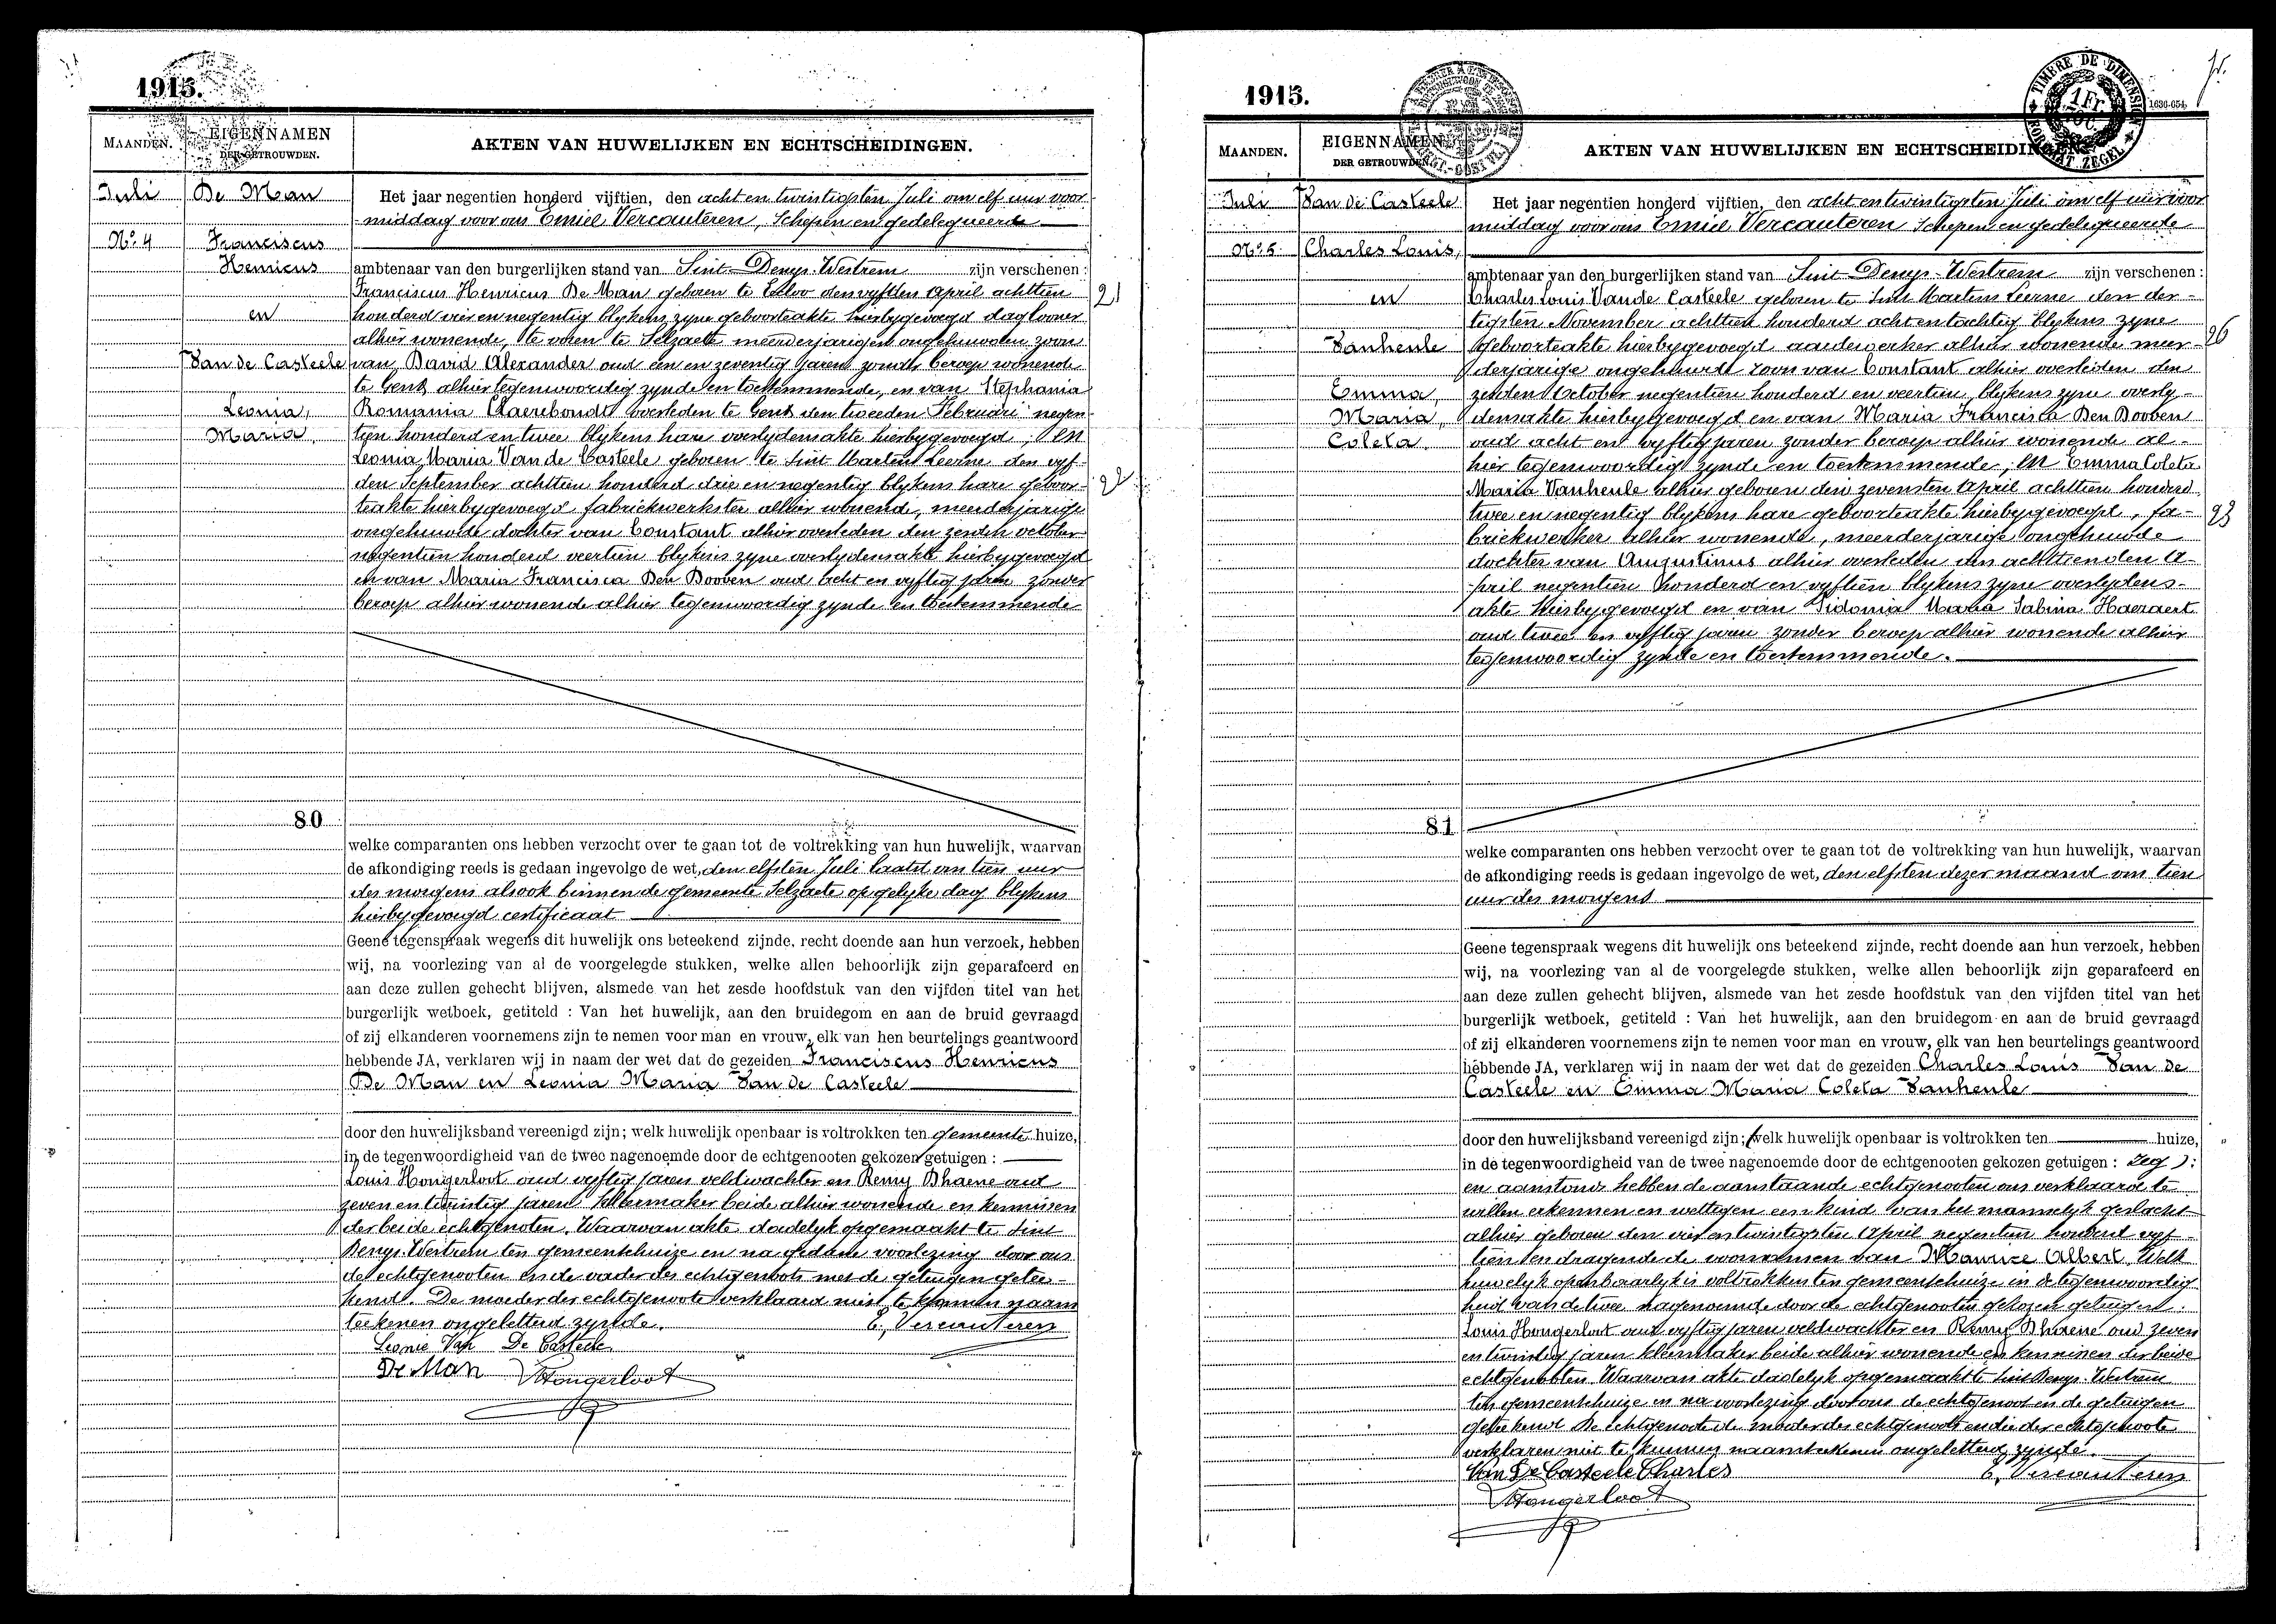 1915.
MAANDEN.
EIGENNAMEN
DER GETROUWDEN.
AKTEN VAN HUWELIJKEN EN ECHTSCHEIDINGEN.
Juli
De Man
Het jaar negentien honderd vijftien, den acht en twintigsten Juli om elf uur voor
middag voor ons Emiel Vercauteren, Schepen en gedelegueerde
No. 4
Franciscus
Henricus
ambtenaar van den burgerlijken stand van Sint-Denys-Westrem zijn verschenen:
Franciscus Henricus De Man geboren te den vyfden April achttien
21
en
honderd vier en negentig blykens zyne geboorteakte hierbygevoegd daglooner
alhier wonende, te voren te Selzaete meerderjarigen ongehuwden zoon
Van de Casteele
van David Alexander oud een en zeventig jaren zonder beroep wonende
te Gent alhier tegenwoordig zynde en toestemmende, en van Stephania
Leonia,
Romania overleden te Gent den tweeden Februari negen-
Maria.
tien honderd en twee blykens hare overlydensakte hierbygevoegd; en
Leonia Maria Van de Casteele geboren te Sint Martens Leerne den vyf-
den September achttien honderd drie en negentig blykens hare geboor-
22
teakte hierbygevoegd fabriekwerkster alhier wonende, meerderjarige
ongehuwde dochter van Constant alhier overleden den zesden october
negentien honderd veertien blykens zyne overlydensakte hierbygevoegd
en van Maria Francisca Den Dooven oud acht en vyftig jaren zonder
beroep alhier wonende alhier tegenwoordig zynde en toestemmende
80
welke comparanten ons hebben verzocht over te gaan tot de voltrekking van hun huwelijk, waarvan
de afkondiging reeds is gedaan ingevolge de wet, den elfsten Juli laatst om tien uur
des morgens alsook binnen de gemeente Selzaete op gelyke dag blykens
hierbygevoegd certificaat
Geene tegenspraak wegens dit huwelijk ons beteekend zijnde, recht doende aan hun verzoek, hebben
wij, na voorlezing van al de voorgelegde stukken, welke allen behoorlijk zijn geparafeerd en
aan deze zullen gehecht blijven, alsmede van het zesde hoofdstuk van den vijfden titel van het
burgerlijk wetboek, getiteld : Van het huwelijk, aan den bruidegom en aan de bruid gevraagd
of zij elkanderen voornemens zijn te nemen voor man en vrouw, elk van hen beurtelings geantwoord
hebbende JA, verklaren wij in naam der wet dat de gezeiden Franciscus Henricus
De Man en Leonia Maria Van de Casteele
door den huwelijksband vereenigd zijn; welk huwelijk openbaar is voltrokken ten gemeente huize,
in de tegenwoordigheid van de twee nagenoemde door de echtgenooten gekozen getuigen :
Louis Hongerloot oud vyftig jaren veldwachter en Remy Dhaene oud
zeven en twintig jaren beide alhier wonende en kennissen
der beide echtgenoten. Waarvan akte dadelyk opgemaakt te Sint
Denys-Westrem ten gemeentehuize en na gedane voorlezing door ons
de echtgenooten en de vader des echtgenoots met de getuigen getee-
kend. De moeder der echtgenoote verklaard niet te kunnen naam
teekenen ongeletterd zynde. E. Vercauteren
Leonie Van De Casteele
De Man Hongerloot
1915.
TIMBRE DE DIMENSION
1 Fr.
1636-654
MAANDEN.
EIGENNAMEN
DER GETROUWDEN.
AKTEN VAN HUWELIJKEN EN ECHTSCHEIDINGEN.
Juli
Van de Casteele
Het jaar negentien honderd vijftien, den acht en twintigsten Juli om elf uur voor
middag voor ons Emiel Vercauteren Schepen en gedelegueerde
No. 5
Charles Louis,
ambtenaar van den burgerlijken stand van Sint-Denys-Westrem zijn verschenen:
en
Charles Louis Van de Casteele geboren te Sint Martens Leerne den der-
tigsten November achttien honderd acht en tachtig blykens zyne
Vanheule
geboorteakte hierbygevoegd aardewerker alhier wonende meer-
26
derjarige ongehuwde zoon van Constant alhier overleden den
Emma,
zesden October negentien honderd en veertien, blykens zyne overly-
Maria,
densakte hierbygevoegd en van Maria Francisca Den Dooven
Coleta.
oud acht en vyftig jaren zonder beroep alhier wonende al-
hier tegenwoordig zynde en toestemmende; en Emma Coleta
Maria Vanheule alhier geboren den zevensten April achttien honderd
twee en negentig blykens hare geboorteakte hierbygevoegd, fa-
23
briekwerker alhier wonende, meerderjarige ongehuwde
dochter van Augustinus alhier overleden den achttienden A-
pril negentien honderd en vyftien blykens zyne overlydens-
akte hierbygevoegd en van Sidonia Maria Sabina Haeraert
oud twee en vyftig jaren zonder beroep alhier wonende alhier
tegenwoordig zynde en toestemmende.
81
welke comparanten ons hebben verzocht over te gaan tot de voltrekking van hun huwelijk, waarvan
de afkondiging reeds is gedaan ingevolge de wet, den elfsten dezer maand om tien
uur des morgens
Geene tegenspraak wegens dit huwelijk ons beteekend zijnde, recht doende aan hun verzoek, hebben
wij, na voorlezing van al de voorgelegde stukken, welke allen behoorlijk zijn geparafeerd en
aan deze zullen gehecht blijven, alsmede van het zesde hoofdstuk van den vijfden titel van het
burgerlijk wetboek, getiteld : Van het huwelijk, aan den bruidegom en aan de bruid gevraagd
of zij elkanderen voornemens zijn te nemen voor man en vrouw, elk van hen beurtelings geantwoord
hebbende JA, verklaren wij in naam der wet dat de gezeiden Charles Louis Van de
Casteele en Emma Maria Coleta Vanheule
door den huwelijksband vereenigd zijn; welk huwelijk openbaar is voltrokken ten huize,
in de tegenwoordigheid van de twee nagenoemde door de echtgenooten gekozen getuigen :
en aanstonds hebben de aanstaande echtgenooten ons verklaard te
willen erkennen en wettigen een kind van het mannelyk geslacht
alhier geboren den vier en twintigsten April negentien honderd vyf-
tien en dragende de voornamen van Maurice Albert. Welk
huwelyk openbaarlyk is voltrokken ten gemeentehuize in de tegenwoordig
heid van de twee nagenoemde door de echtgenooten gekozen getuigen
Louis Hongerloot oud vyftig jaren veldwachter en Remy Dhaene oud zeven
en twintig jaren beide alhier wonende en kennissen der beide
echtgenooten. Waarvan akte dadelyk opgemaakt te Sint Denys-Westrem
ten gemeentehuize en na voorlezing door ons de echtgenoot en de getuigen
geteekend. De echtgenoote de moeder des echtgenoots en die der echtgenoote
verklaren niet te kunnen naamteekenen ongeletterd zynde.
Van De Casteele Charles E. Vercauteren
Hongerloot